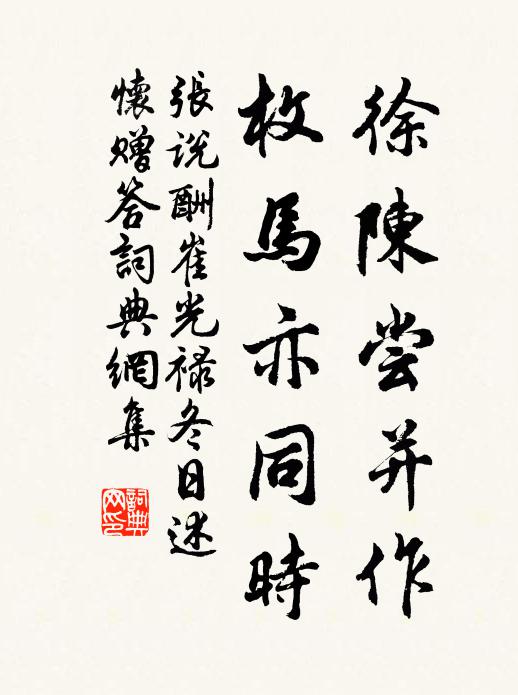 徐陳尝并作
枚馬亦同時
張说酬崔光禄冬日述
懷赠答詞典網集
詞典
网印